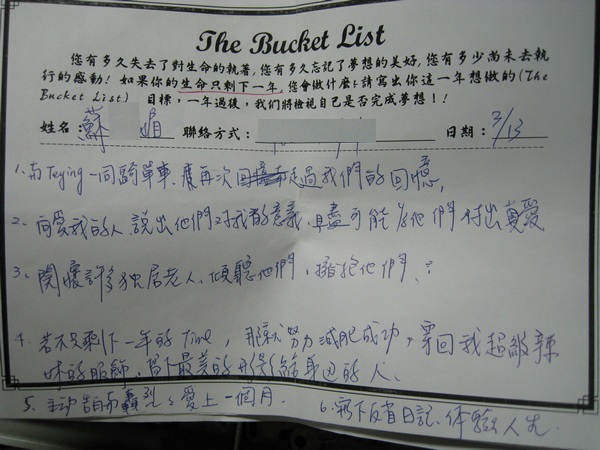 The Bucket List
您有多久失去了對生命的執著,您有多久忘記了夢想的美好,您有多少尚未去執
行的感動! 如果你的生命只剩下一年,您會做什麼?請寫出你這一年想做的(The
Bucket List) 目標,一年過後,我們將檢視自己是否完成夢想!!
姓名: 蘇 娟 聯絡方式: 日期: 3/13
1、與Teying一同騎單車,再次走過我們的回憶,
2、向愛我的人說出他們對我的意義,且盡可能為他們付出真愛
3、關懷許多獨居老人、傾聽他們,擁抱他們、
4、若不只剩下一年的Time,那就努力減肥成功,穿回我超級辣
妹的服飾,留下最美的形象給身邊的人、
5、主動告白而轟烈烈愛上一個月.
6、寫下反省日記、体驗人生.